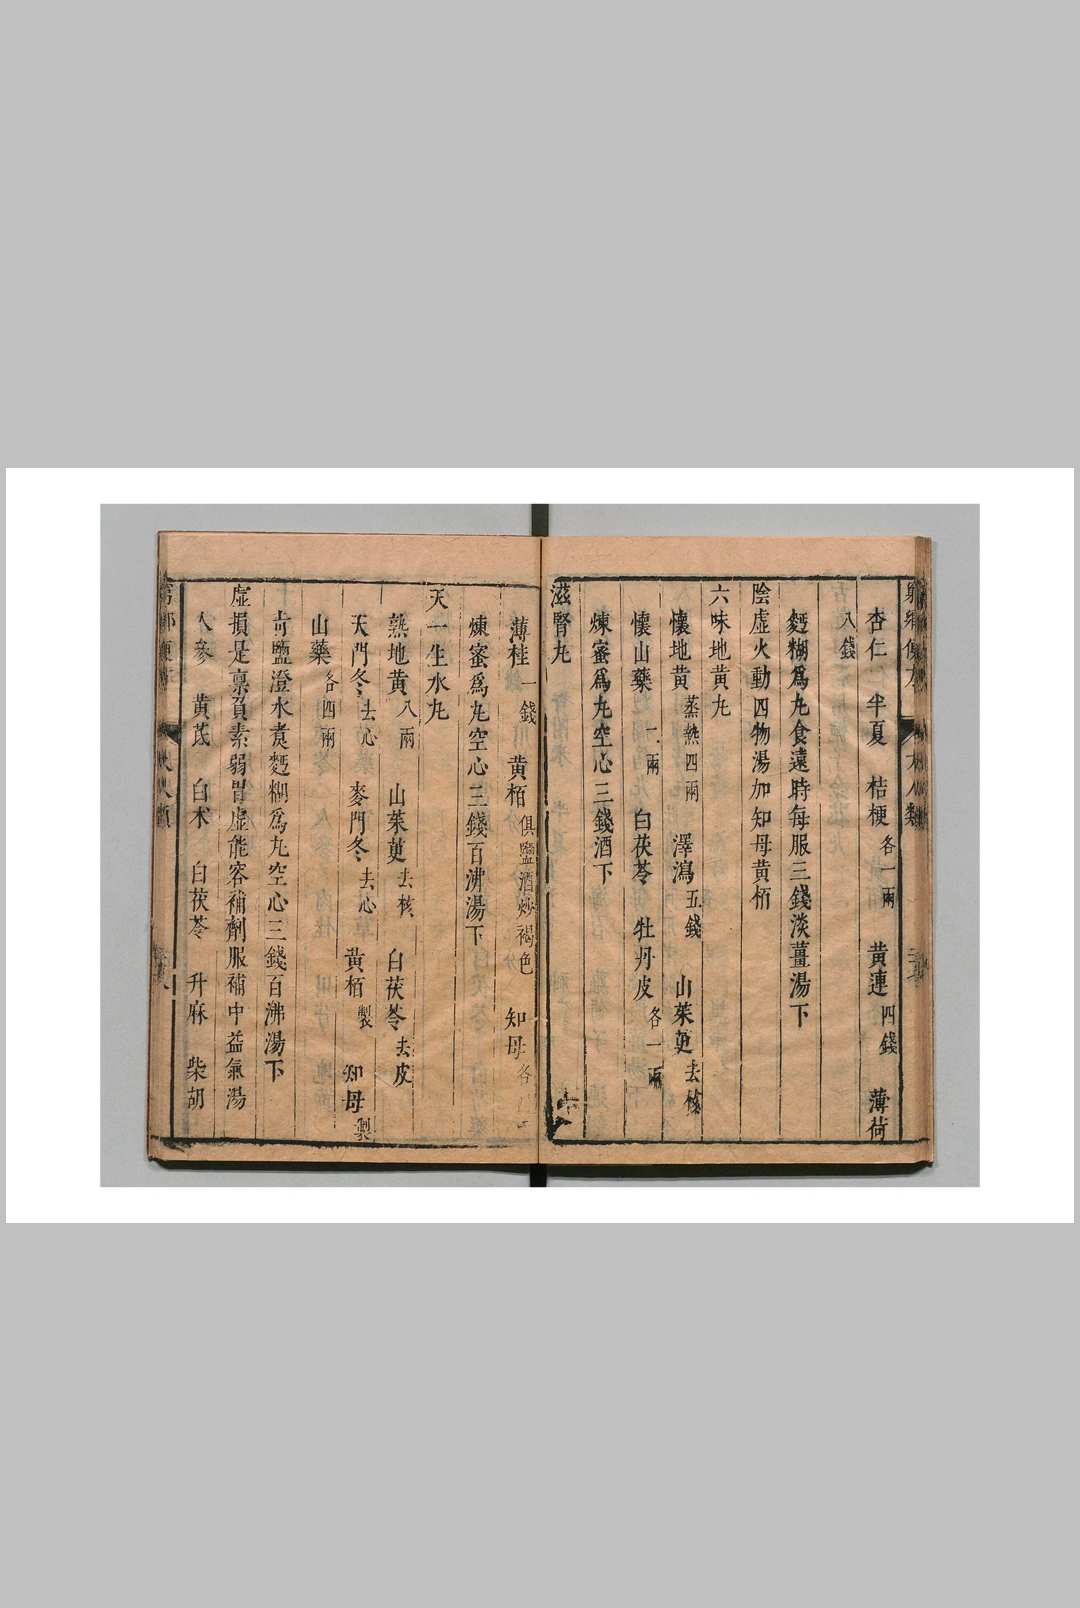 杏仁 半夏 桔梗各一兩 黃連四錢 薄荷
八錢
麪糊爲丸食遠時每服三錢淡薑湯下
陰虛火動四物湯加知母黃栢
六味地黃丸
懷地黃蒸熱四兩 澤瀉五錢 山茱萸去核
懷山藥二兩 白茯苓 牡丹皮各一兩
煉蜜爲丸空心三錢酒下
滋腎丸
薄桂一錢 黃栢俱鹽酒炒褐色 知母各
煉蜜爲丸空心三錢百沸湯下
天一生水丸
熟地黃八兩 山茱萸去核 白茯苓去皮
天門冬去心 麥門冬去心 黃栢製 知母製
山藥各四兩
青鹽澄水煮麪糊爲丸空心三錢百沸湯下
虛損是禀負素弱胃虛能容補劑服補中益氣湯
人參 黃芪 白术 白茯苓 升麻 柴胡